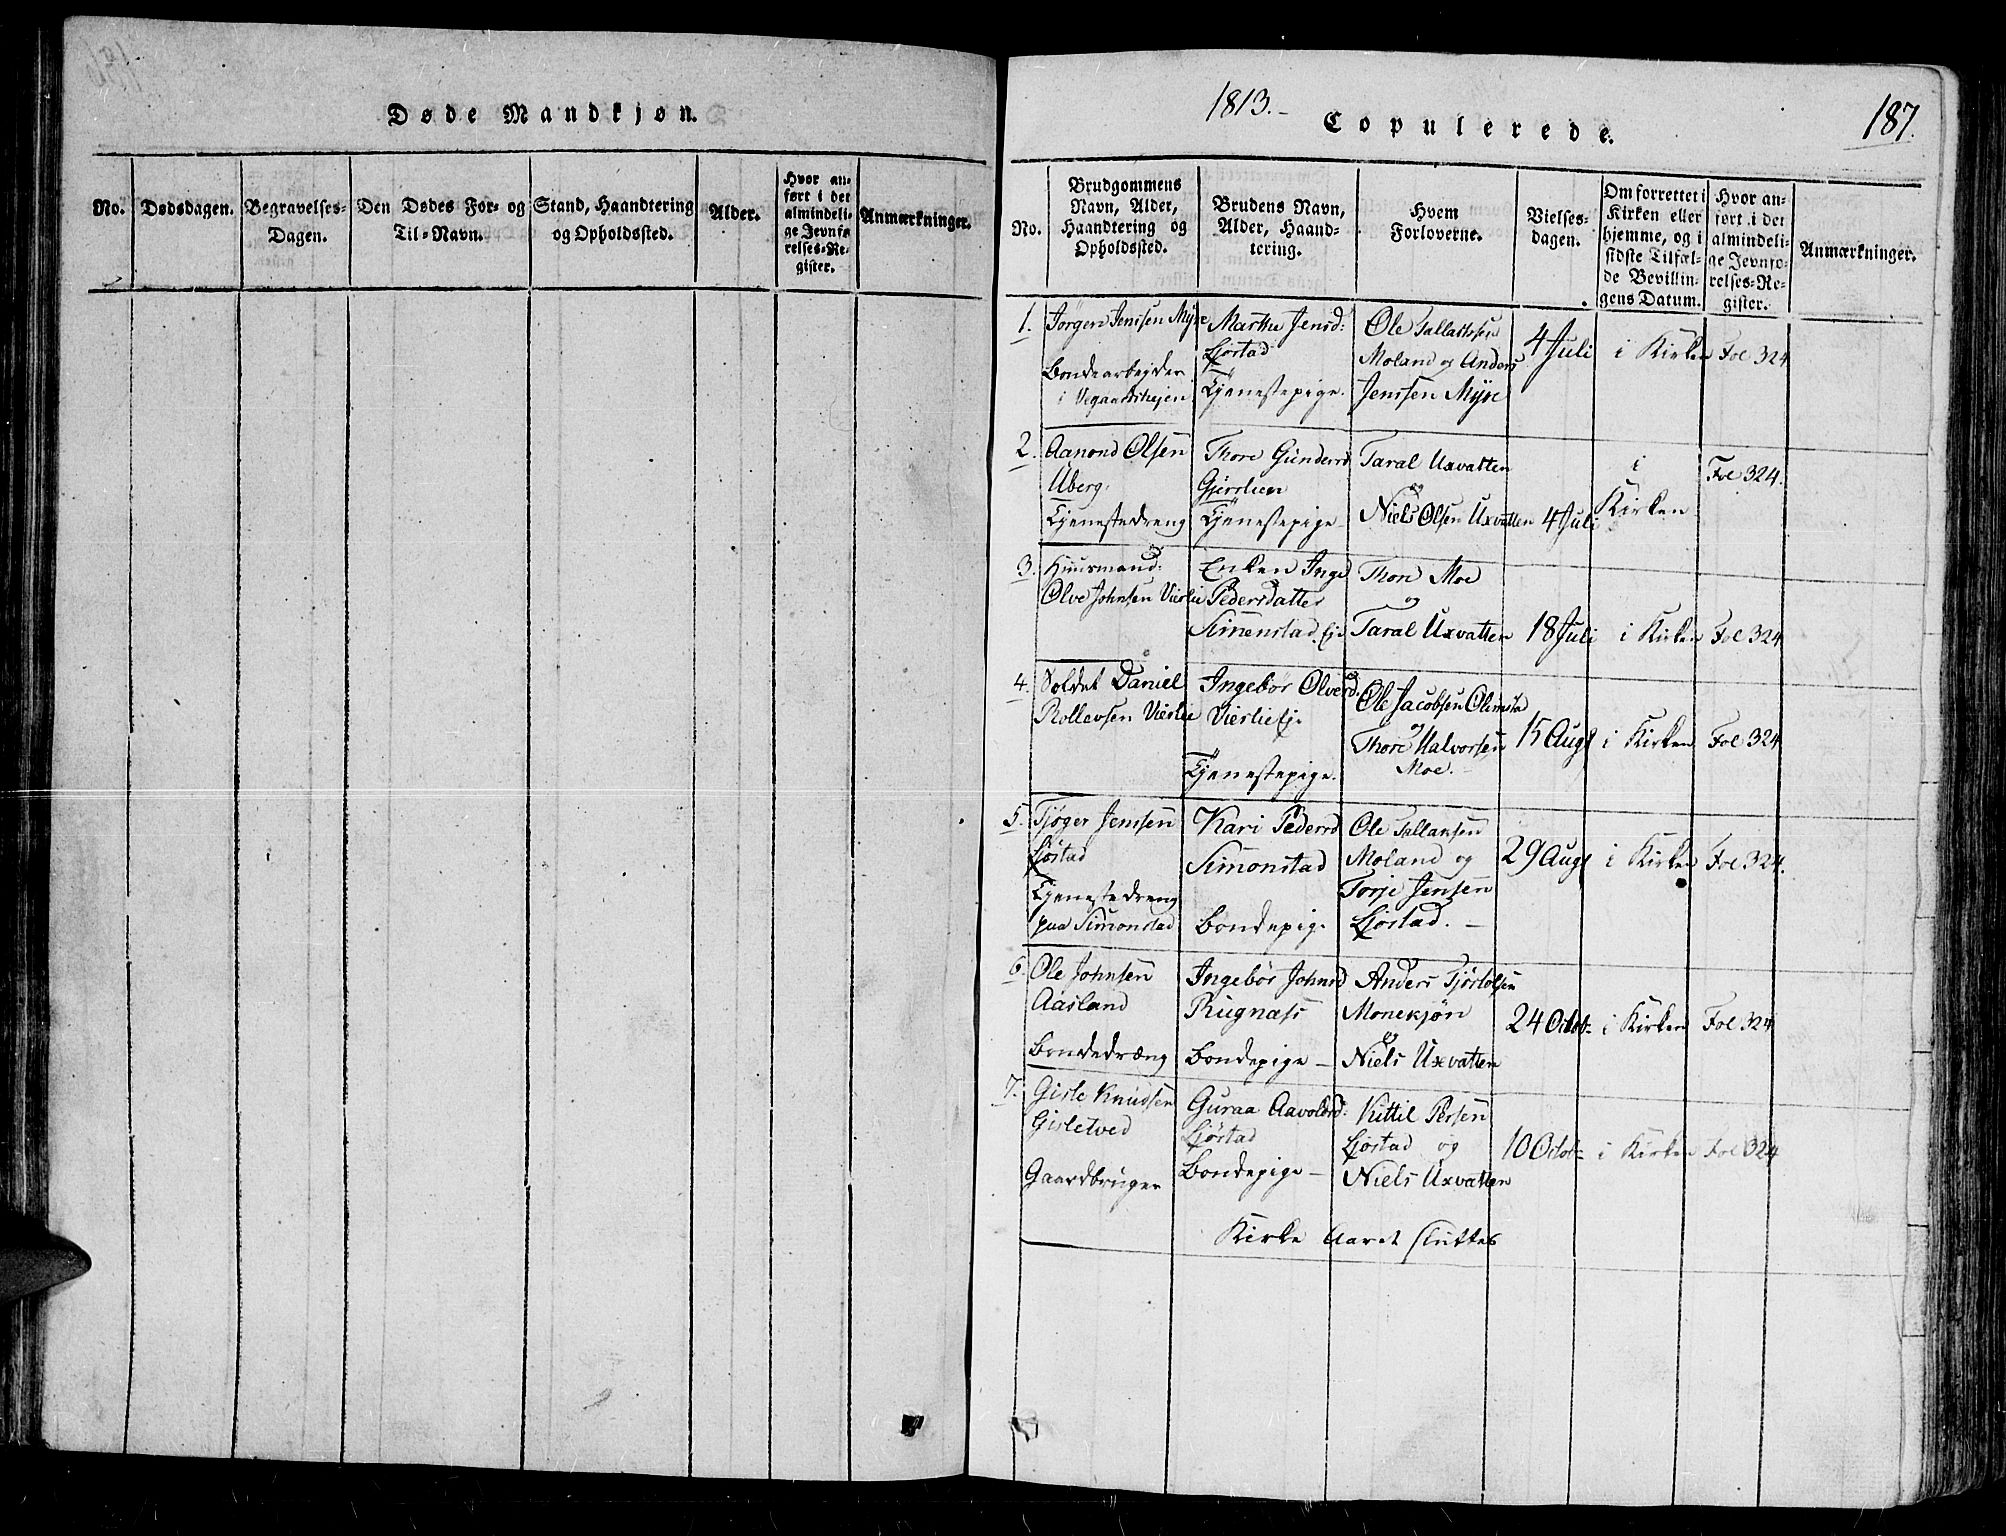 Døde Mandkjøn.
No.
Dødsdagen.
Begravelses-
Dagen.
Den Dødes For- og
Til-Navn.
Stand, Haandtering
og Opholdssted.
Alder.
Hvor an-
ført i det
almindeli-
ge Jevnfø
relses-Re-
gister.
Anmærkninger.
1813.-
Copulerede.
187.
No.
Brudgommens
Navn, Alder,
Haandtering og
Opholdssted.
Brudens Navn,
Alder, Haand-
tering.
Hvem
Forloverne.
Vielses-
dagen.
Om forrettet i
Kirken eller
hjemme, og i
sidste Tilfæl-
de Bevillin-
gens Datum.
Hvor an-
ført i det
almindeli-
ge Jevnfø-
relses-Re-
gister.
Anmærkninger.
1.
Jørgen Jenssen Myre
Bondearbejder
i Vegaardshejen
Marthe Jensd:
Ljøstad
Tjenestepige.
Ole Tallaksen
Moland og Anders
Jenssen Myre
4 Juli
i Kirken
Fol 324
2.
Aanond Olsen
Uberg.
Tjenestedreng
Thore Gundersd
Tjenestepige
Taral Uxvatten
og
Niels Olsen Uxvatten
4 Juli
i
Kirken
Fol 324.
3.
Huusmand:
Olve Johnsen Vierlie
Enken Inge
Pedersdatter
Simenstad Eje
Thore Moe
og
Taral Uxvatten
18 Juli
i Kirken
Fol 324
4.
Soldat Daniel
Rollevsen Vierlie
Ingebør Olversd.
Vierlie Ej.
Tjenestepige.
Ole Jacobsen Olimsta
og
Thore Halvorsen
Moe.
15 Augt
i Kirken
Fol 324
5.
Tjøger Jenssen
Ljøstad
Tjenestedreng
paa Simonstad
Kari Pedersd
Simonstad
Bondepige
Ole Tallaksen
Moland og
Torje Jensen
Ljøstad.
29 Augt
i Kirken
Fol 324.
6.
Ole Johnsen
Aasland
Bondedræng
Ingebør Johnsd
Rugnæss
Bondepige
Anders Tjøstolsen
Monekjøn
og
Niels Uxvatten
24 Octob:
i Kirken
Fol 324
7.
Gisle Knudsen
Gisletved
Gaardbruger
Guraa Aavoldsd:
Ljøstad
Bondepige
Kittil Persen
Ljøstad og
Niels Uxvatten
10 Octob:
i Kirken
Fol 324
Kirke Aaret sluttes